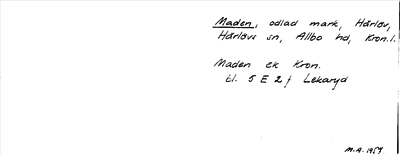 Maden, odlad mark, Härlöv,
Härlövs sn, Allbo hd, Kron.l.
Maden ek Kron.
t.l. 5 E 2 f Lekaryd
M.A. 1957.